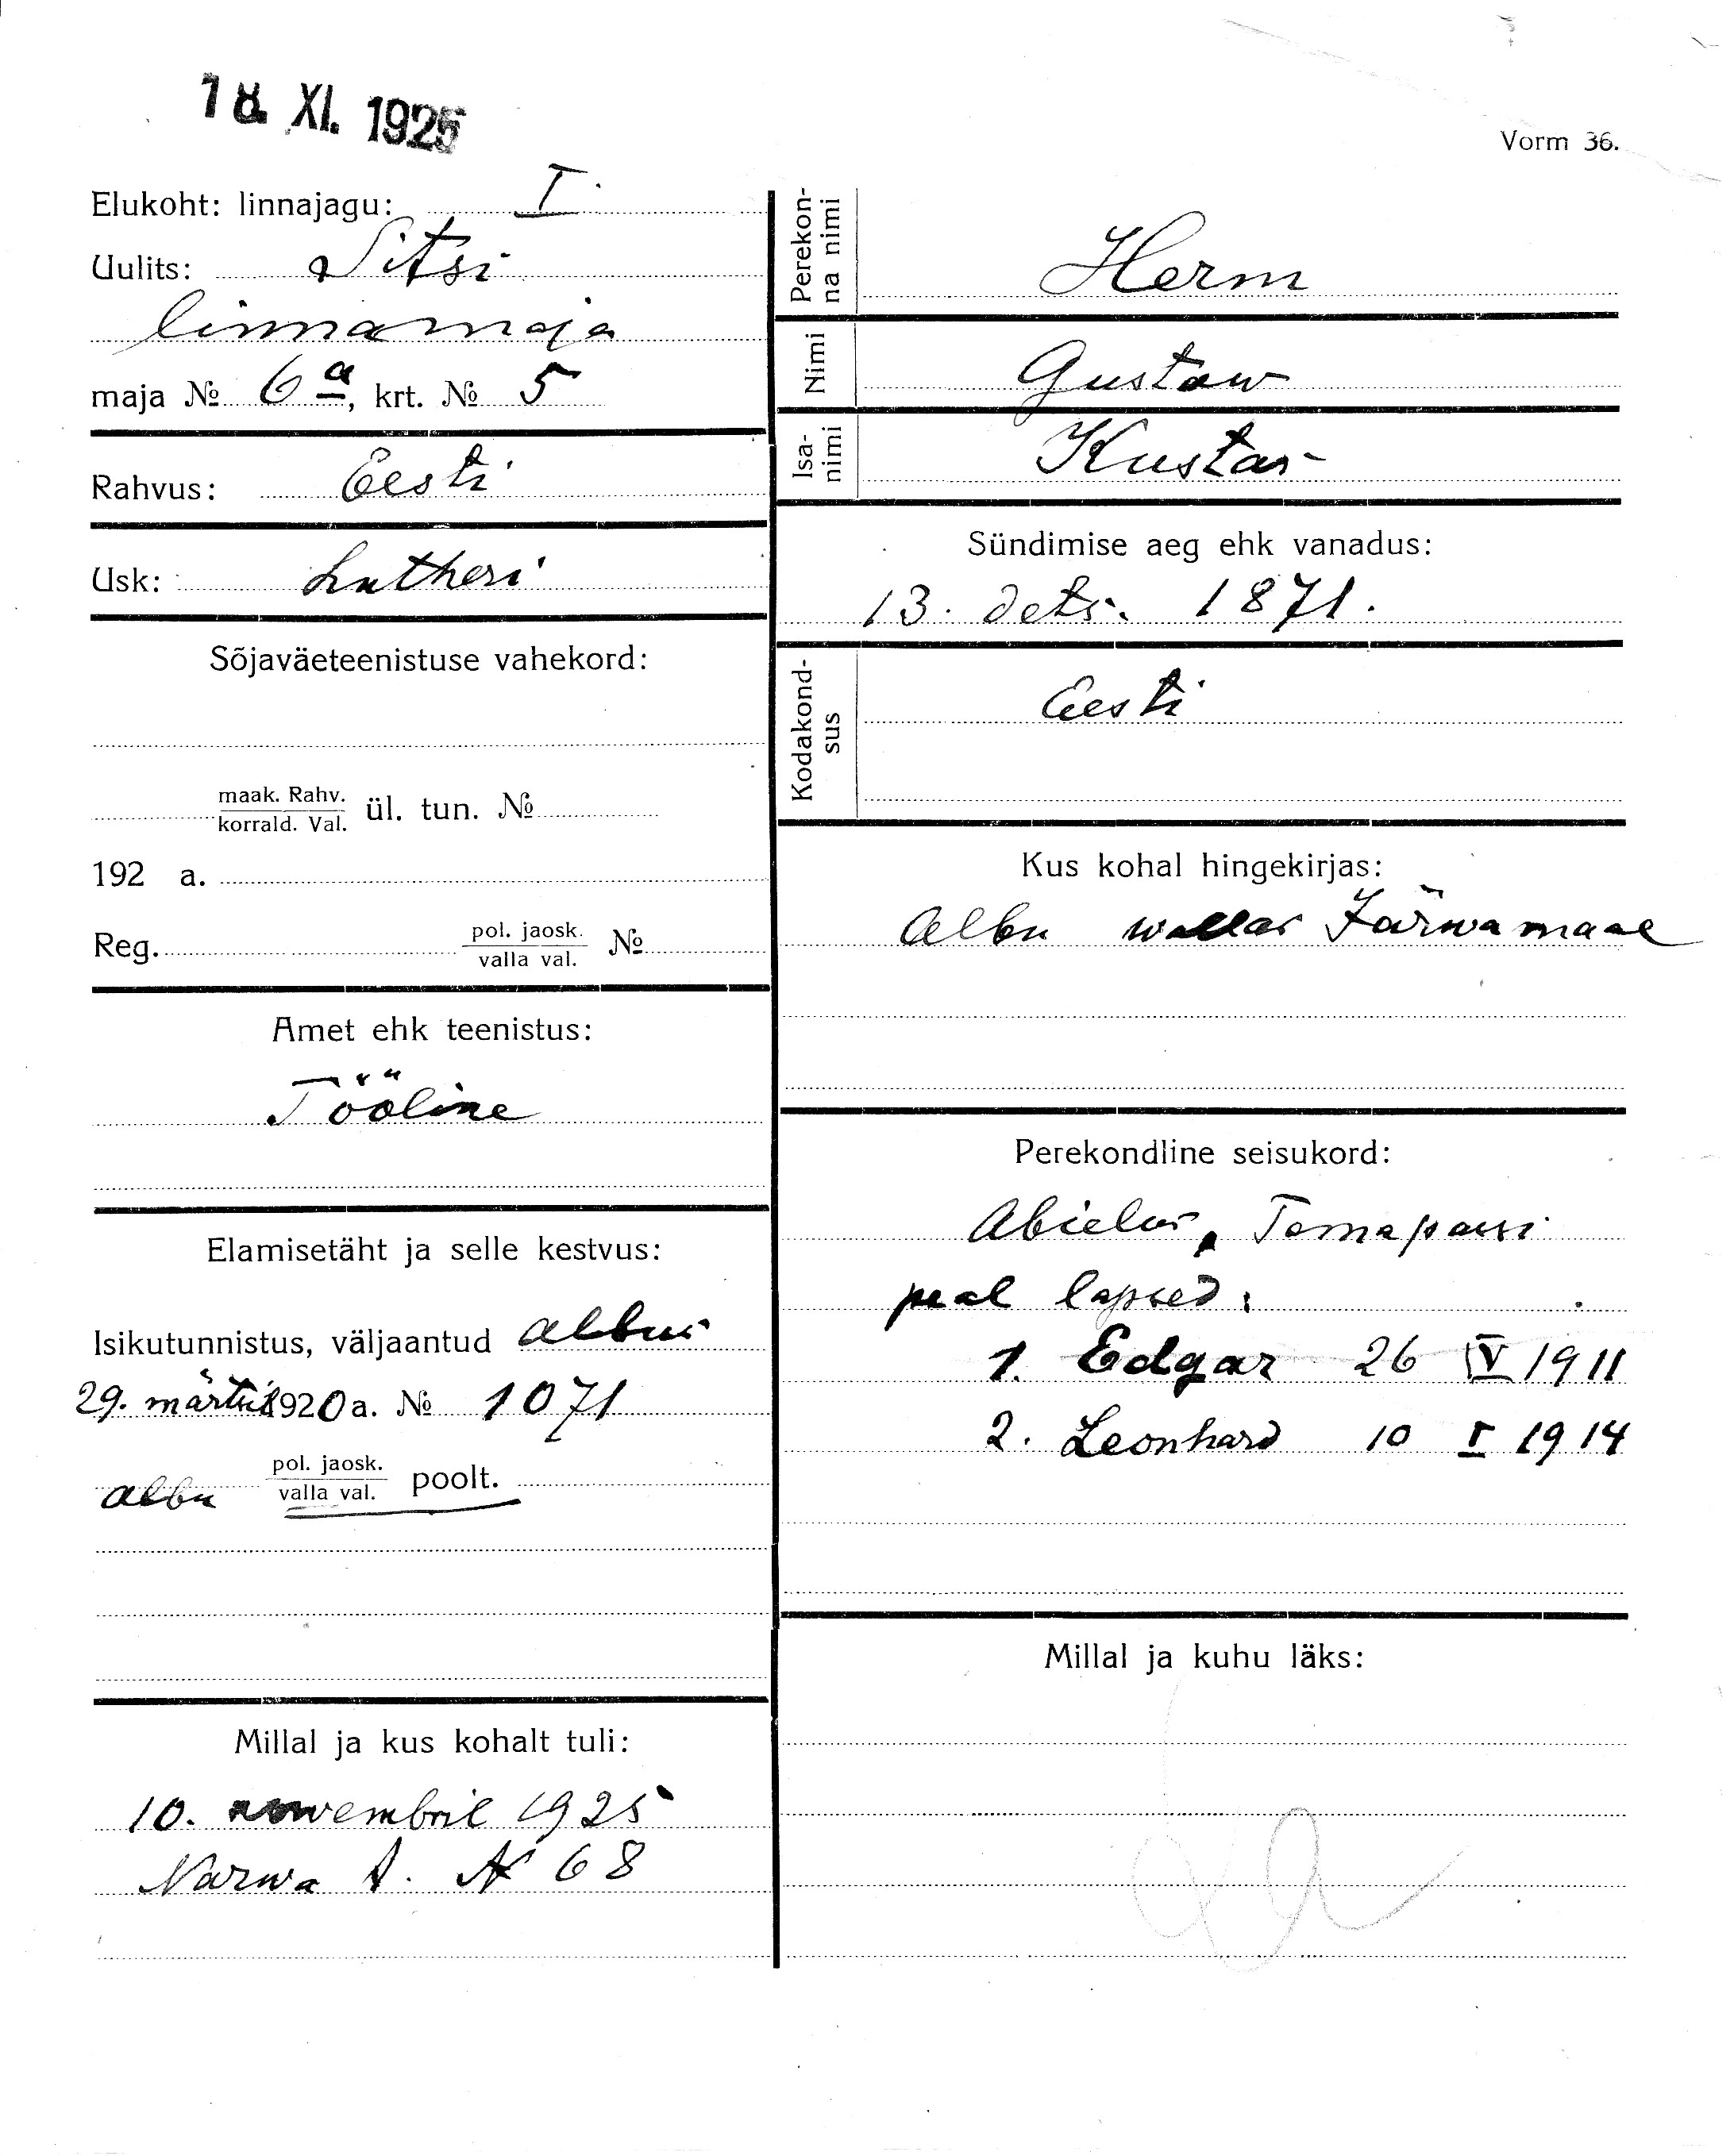 18. XI. 1925
Vorm 36.
Elukoht: linnajagu: I
Uulits: Sitsi
linnamaja
maja № 6a, krt. № 5
Rahvus: Eesti
Usk: Lutheri
Sõjaväeteenistuse vahekord:
maak. Rahv.
korrald. Val. ül. tun. №
192 a.
Reg. pol. jaosk.
valla val. №
Amet ehk teenistus:
Tööline
Elamisetäht ja selle kestvus:
Isikutunnistus, väljaantud Albus
29. märtsil 1920 a. № 1071
Albu pol. jaosk.
valla val. poolt.
Millal ja kus kohalt tuli:
10. novembril 1925
Narwa № 68
Perekon-
na nimi
Herm
Nimi
Gustaw
Isa-
nimi
Kustas
Sündimise aeg ehk vanadus:
13. dets. 1871.
Kodakond-
sus
Eesti
Kus kohal hingekirjas:
Albu wallas Järwamaal
Perekondline seisukord:
Abielus, Tema passi
peal lapsed:
1. Edgar 26 IV 1911
2. Leonhard 10 I 1914
Millal ja kuhu läks: